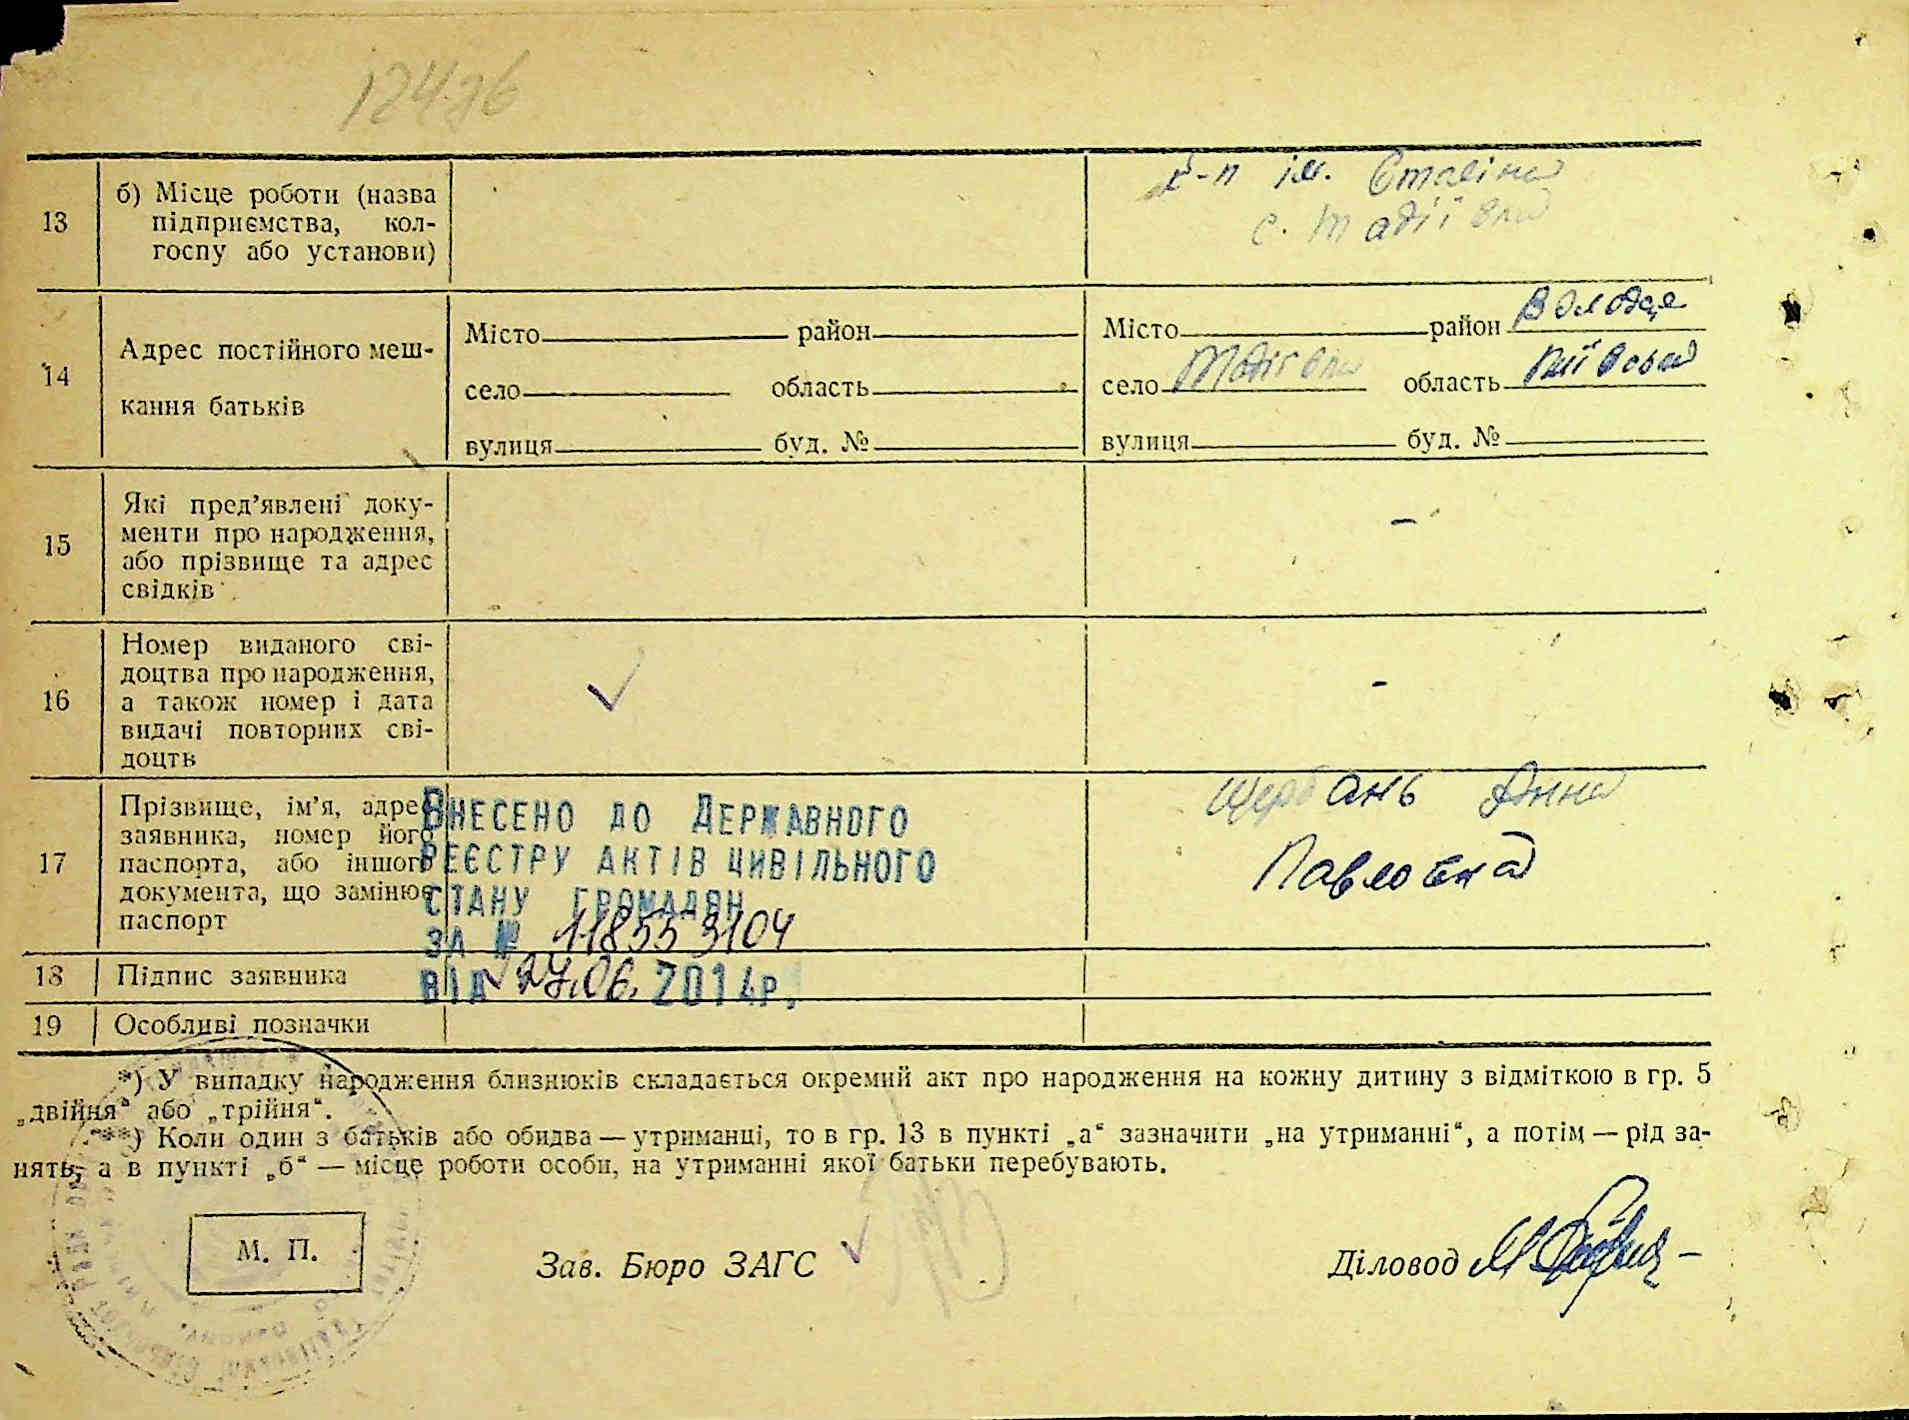 13
б) Місце роботи (назва
підприємства, кол-
госпу або установи)
к-п ім. Сталіна
с. Тадіївка
14
Адрес постійного меш-
кання батьків
Місто район
село область
вулиця буд. №
Місто район Володар
село Тадіївка область Київська
вулиця буд. №
15
Які пред’явлені доку-
менти про народження,
або прізвище та адрес
свідків
-
16
Номер виданого сві-
доцтва про народження,
а також номер і дата
видачі повторних сві-
доцтв
-
17
Прізвище, ім’я, адрес
заявника, номер його
паспорта, або іншого
документа, що замінює
паспорт
Внесено до Державного
реєстру актів цивільного
стану громадян
за № 11855 3104
від 27.06. 2014р.
Щербань Анна
Павловна
18 Підпис заявника
19 Особливі позначки
*) У випадку народження близнюків складається окремий акт про народження на кожну дитину з відміткою в гр. 5
„двійня“ або „трійня“.
**) Коли один з батьків або обидва — утриманці, то в гр. 13 в пункті „а“ зазначити „на утриманні“, а потім — рід за-
нять, а в пункті „б“ — місце роботи особи, на утриманні якої батьки перебувають.
М. П.
Зав. Бюро ЗАГС
Діловод